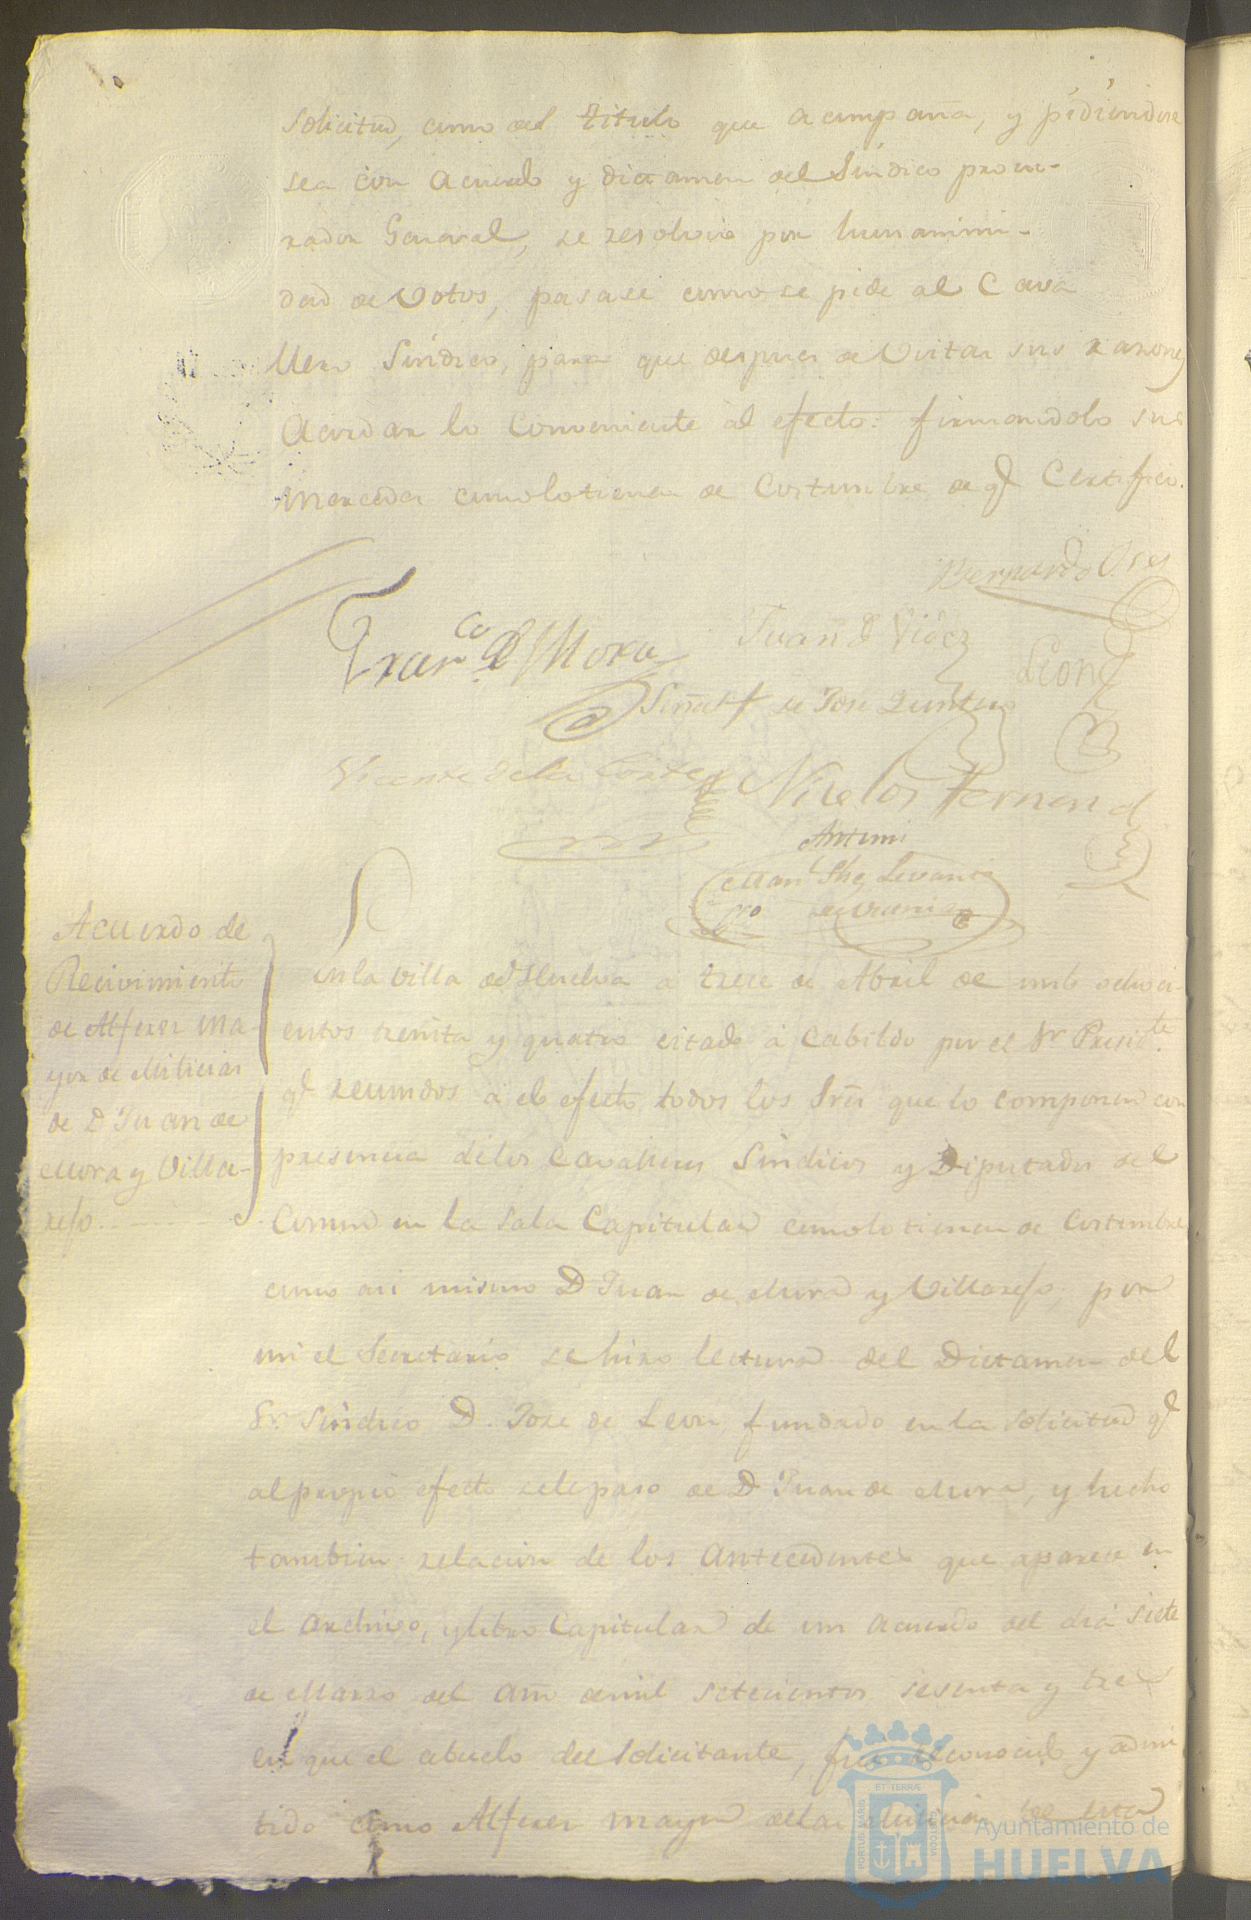 Solicitud, como del titulo que acompaña, y pidiendose
sea con acuerdo y dictamen del Sindico procu-
rador General, se resolvio por hunanimi-
dad de Votos, pasase como se pide al Cava
llero Sindico, para que despues de Vistas sus razones
Acordar lo Conveniente al efecto: firmandolo sus
Mercedes como lo tienen de Costumbre de qe Certifico.
Bernardo
Franco de Mora
Juan de
Leon
Señal + de Jose Quintero
Vicente de la Corte
Nicolas Fernand
Antemi
Man Levante
Acuerdo de
Recivimiento
de Alferez Ma-
yor de Milicias
de D Juan de
Mora y Villa-
refo
En la villa de Huelva a trece de Abril de mil ochoci-
entos treinta y quatro citado á Cabildo por el Sr Preside.te
qe reunidos á el efecto todos los Sres que lo componen con
presencia de los Cavalleros Sindicos y Diputados del
Comun en la Sala Capitular como lo tienen de Costumbre
como asi mismo D Juan de Mora y Villarefo, por
mi el Secretario se hizo lectura del Dictamen del
Sr Sindico D. Jose de Leon fundado en la solicitud qe
al propio efecto se le paso de D Juan de Mora, y hecho
tambien relacion de los Antecedentes que aparece en
el Archivo, y libro Capitular de un Acuerdo del dia siete
de Marzo del año de mil setecientos sesenta y tres
en que el abuelo del Solicitante, fue reconocido y admi
tido como Alferez mayor de las Milicias de esta
ET TERRAE
PORTUS MARIS
CUSTODIA
Ayuntamiento de
HUELVA